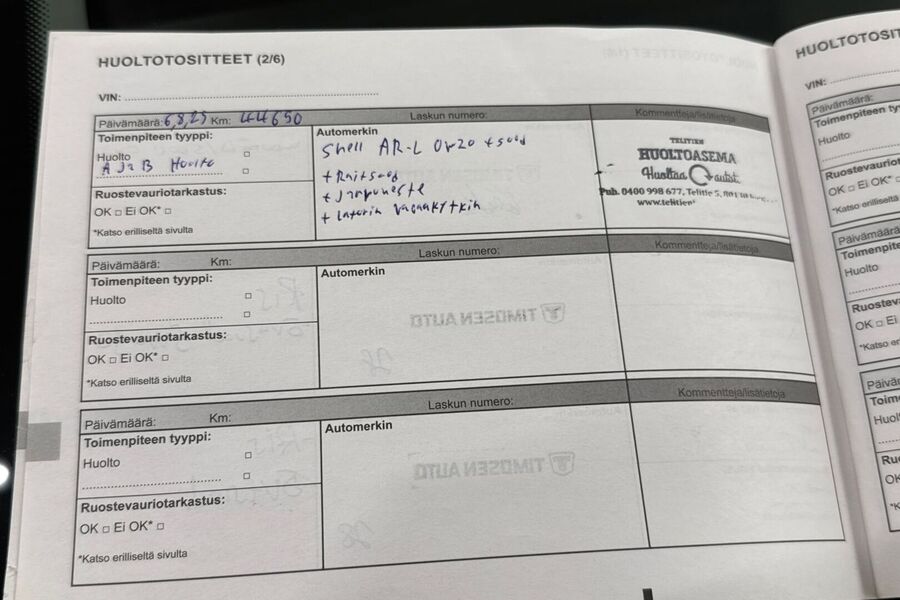 HUOLTOTOSITTEET (2/6)
VIN:
Päivämäärä: 6,8,23 Km: 44650
Laskun numero:
Kommentteja/lisätietoja
Toimenpiteen tyyppi:
Huolto
A Ja B Huolto
Ruostevauriotarkastus:
OK □ Ei OK* □
*Katso erilliseltä sivulta
Automerkin
Shell AR-L 0w20 + suod
+ Rait suod
+ Jarruneste
+ Laturin
TELITIEN
HUOLTOASEMA
Huoltaa autot.
Puh. 0400 998 677, Telitie 5,
www.telitien
Päivämäärä: Km:
Laskun numero:
Kommentteja/lisätietoja
Toimenpiteen tyyppi:
Huolto
Ruostevauriotarkastus:
OK □ Ei OK* □
*Katso erilliseltä sivulta
Automerkin
TIMOSEN AUTO
Päivämäärä: Km:
Laskun numero:
Kommentteja/lisätietoja
Toimenpiteen tyyppi:
Huolto
Ruostevauriotarkastus:
OK □ Ei OK* □
*Katso erilliseltä sivulta
Automerkin
TIMOSEN AUTO
HUOLTOTOSIT
VIN:
Päivämäärä:
Toimenpiteen ty
Huolto
Ruostevauriota
OK □ Ei OK*
*Katso erilliseltä
Päivämäärä:
Toimenpite
Huolto
Ruosteva
OK □ Ei
*Katso er
Päivä
Toim
Huol
Ru
OK